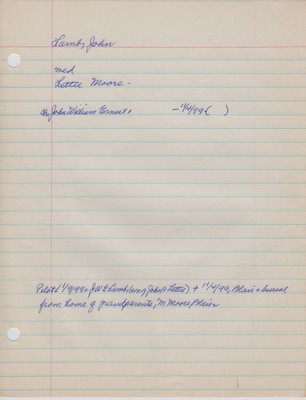 Lamb, John
md
Lettie Moore -
ch John William Ernest +
- 1/4/99 ( )
1/9/99 - J W E Lamb (son of John & Lettie) + 1/4/99, Blair - burial
from home of grandparents, M Moore, Blair